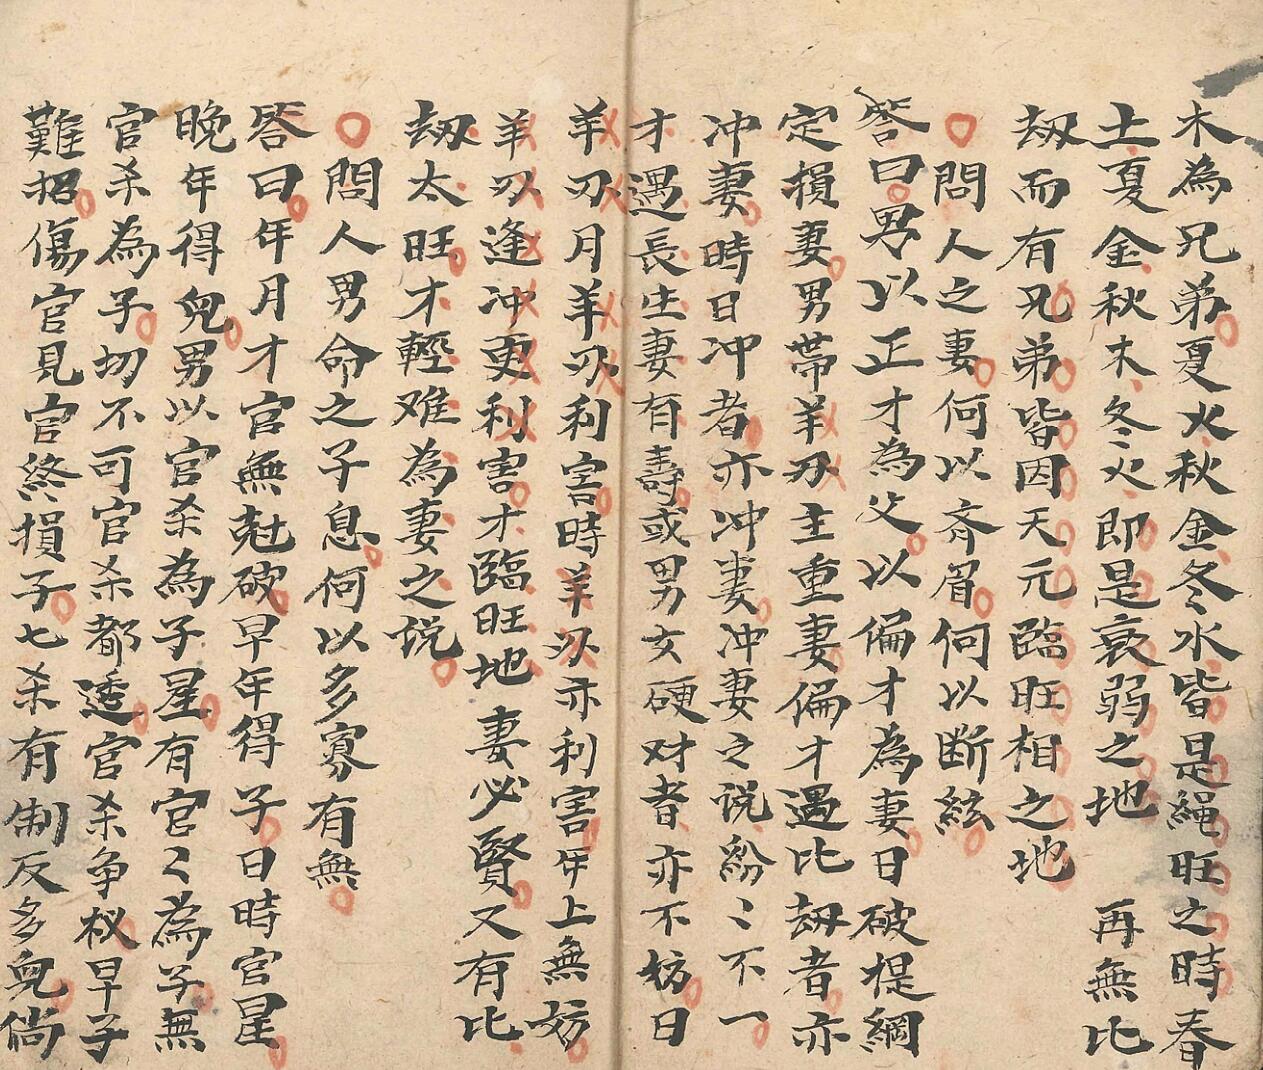 木為兄弟夏火秋金冬水皆是繩旺之時春
土夏金秋木冬火即是衰弱之地 再無比
劫而有兄弟皆因天元臨旺相之地
問人之妻何以齊眉何以断絃
答曰男以正才為父以偏才為妻日破提綱
定損妻男帶羊刃主重妻偏才遇比劫者亦
冲妻時日冲者亦冲妻冲妻之说紛〻不一
才遇長生妻有壽或男女硬对者亦不妨日
羊刃月羊刃利害時羊刃亦利害年上無妨
羊刃逢冲更利害才臨旺地 妻必賢又有比
劫太旺才輕难為妻之说
問人男命之子息何以多寡有無
答曰年月才官無尅破早年得子日時官星
晚年得兒男以官杀為子星有官〻為子無
官杀為子切不可官杀都透官杀争权早子
難招傷官見官終損子七杀有制反多兒倘